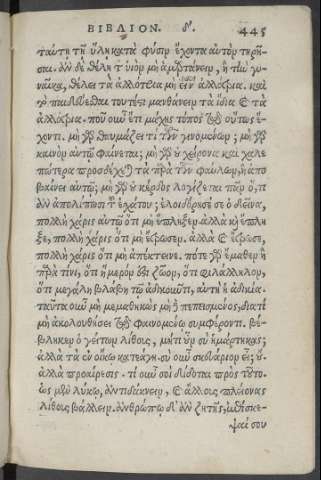 ΒΙΒΛΙΟΝ. δ'. 445
ταύτῃ τῇ ὕλῃ κατὰ φύσιν ἔχοντα αὑτὸν τηρῆ-
σαι. ἂν δὲ θέλῃ τὸν υἱὸν μὴ ἁμαρτάνειν, ἢ τὴν γυ-
ναῖκα, θέλει τὰ ἀλλότρια μὴ εἶναι ἀλλότρια. καὶ
τὸ παιδεύεσθαι τουτέστι μανθάνειν τὰ ἴδια καὶ τὰ
ἀλλότρια. ποῦ οὖν ἔτι μάχης τόπος τῷ οὕτως ἔ-
χοντι. μὴ γὰρ θαυμάζει τι τῶν γινομένων; μὴ γὰρ
καινὸν αὐτῷ φαίνεται; μὴ γὰρ οὐ χείρονα καὶ χαλε-
πώτερα προσδέχεται τὰ παρὰ τῶν φαύλων, ἢ ἀπο
βαίνει αὐτῷ; μὴ γὰρ οὐ κέρδος λογίζεται πᾶν ὅ,τι
ἂν ἀπολίπωσι τοῦ ἐχάτου; ἐλοιδόρησέ σε ὁ δεῖνα,
πολλὴ χάρις αὐτῷ ὅτι μὴ ἔπληξεν. ἀλλὰ καὶ ἔπλη
ξε, πολλὴ χάρις ὅτι μὴ ἔτρωσεν. ἀλλὰ καὶ ἔτρωσε,
πολλὴ χάρις ὅτι μὴ ἀπέκτεινε. πότε γὰρ ἔμαθεν ἢ
παρὰ τίνι, ὅτι ἥμερόν ἐστι ζῷον, ὅτι φιλάλληλον,
ὅτι μεγάλη βλάβη τῷ ἀδικοῦντι, αὐτὴ ἡ ἀδικία.
ταῦτα οὖν μὴ μεμαθηκὼς μὴ δὲ πεπεισμένος, διατί
μὴ ἀκολουθήσει τῷ φαινομένῳ συμφέροντι. βέ-
βληκεν ὁ γείτων λίθους, μήτι οὖν σὺ ἡμάρτηκας;
ἀλλὰ τὰ ἐν οἴκῳ κατεάγη. σὺ οὖν σκευάριον εἶ; οὔ
ἀλλὰ προαίρεσις. τί οὖν σοι δίδοται πρὸς τοῦτο.
ὡς μὲν λύκῳ, ἀντιδάκνειν, καὶ ἄλλους πλείονας
λίθους βάλλειν. ἀνθρώπῳ δ' ἂν ζητῇς, ἐπίσκε-
ψαί σου